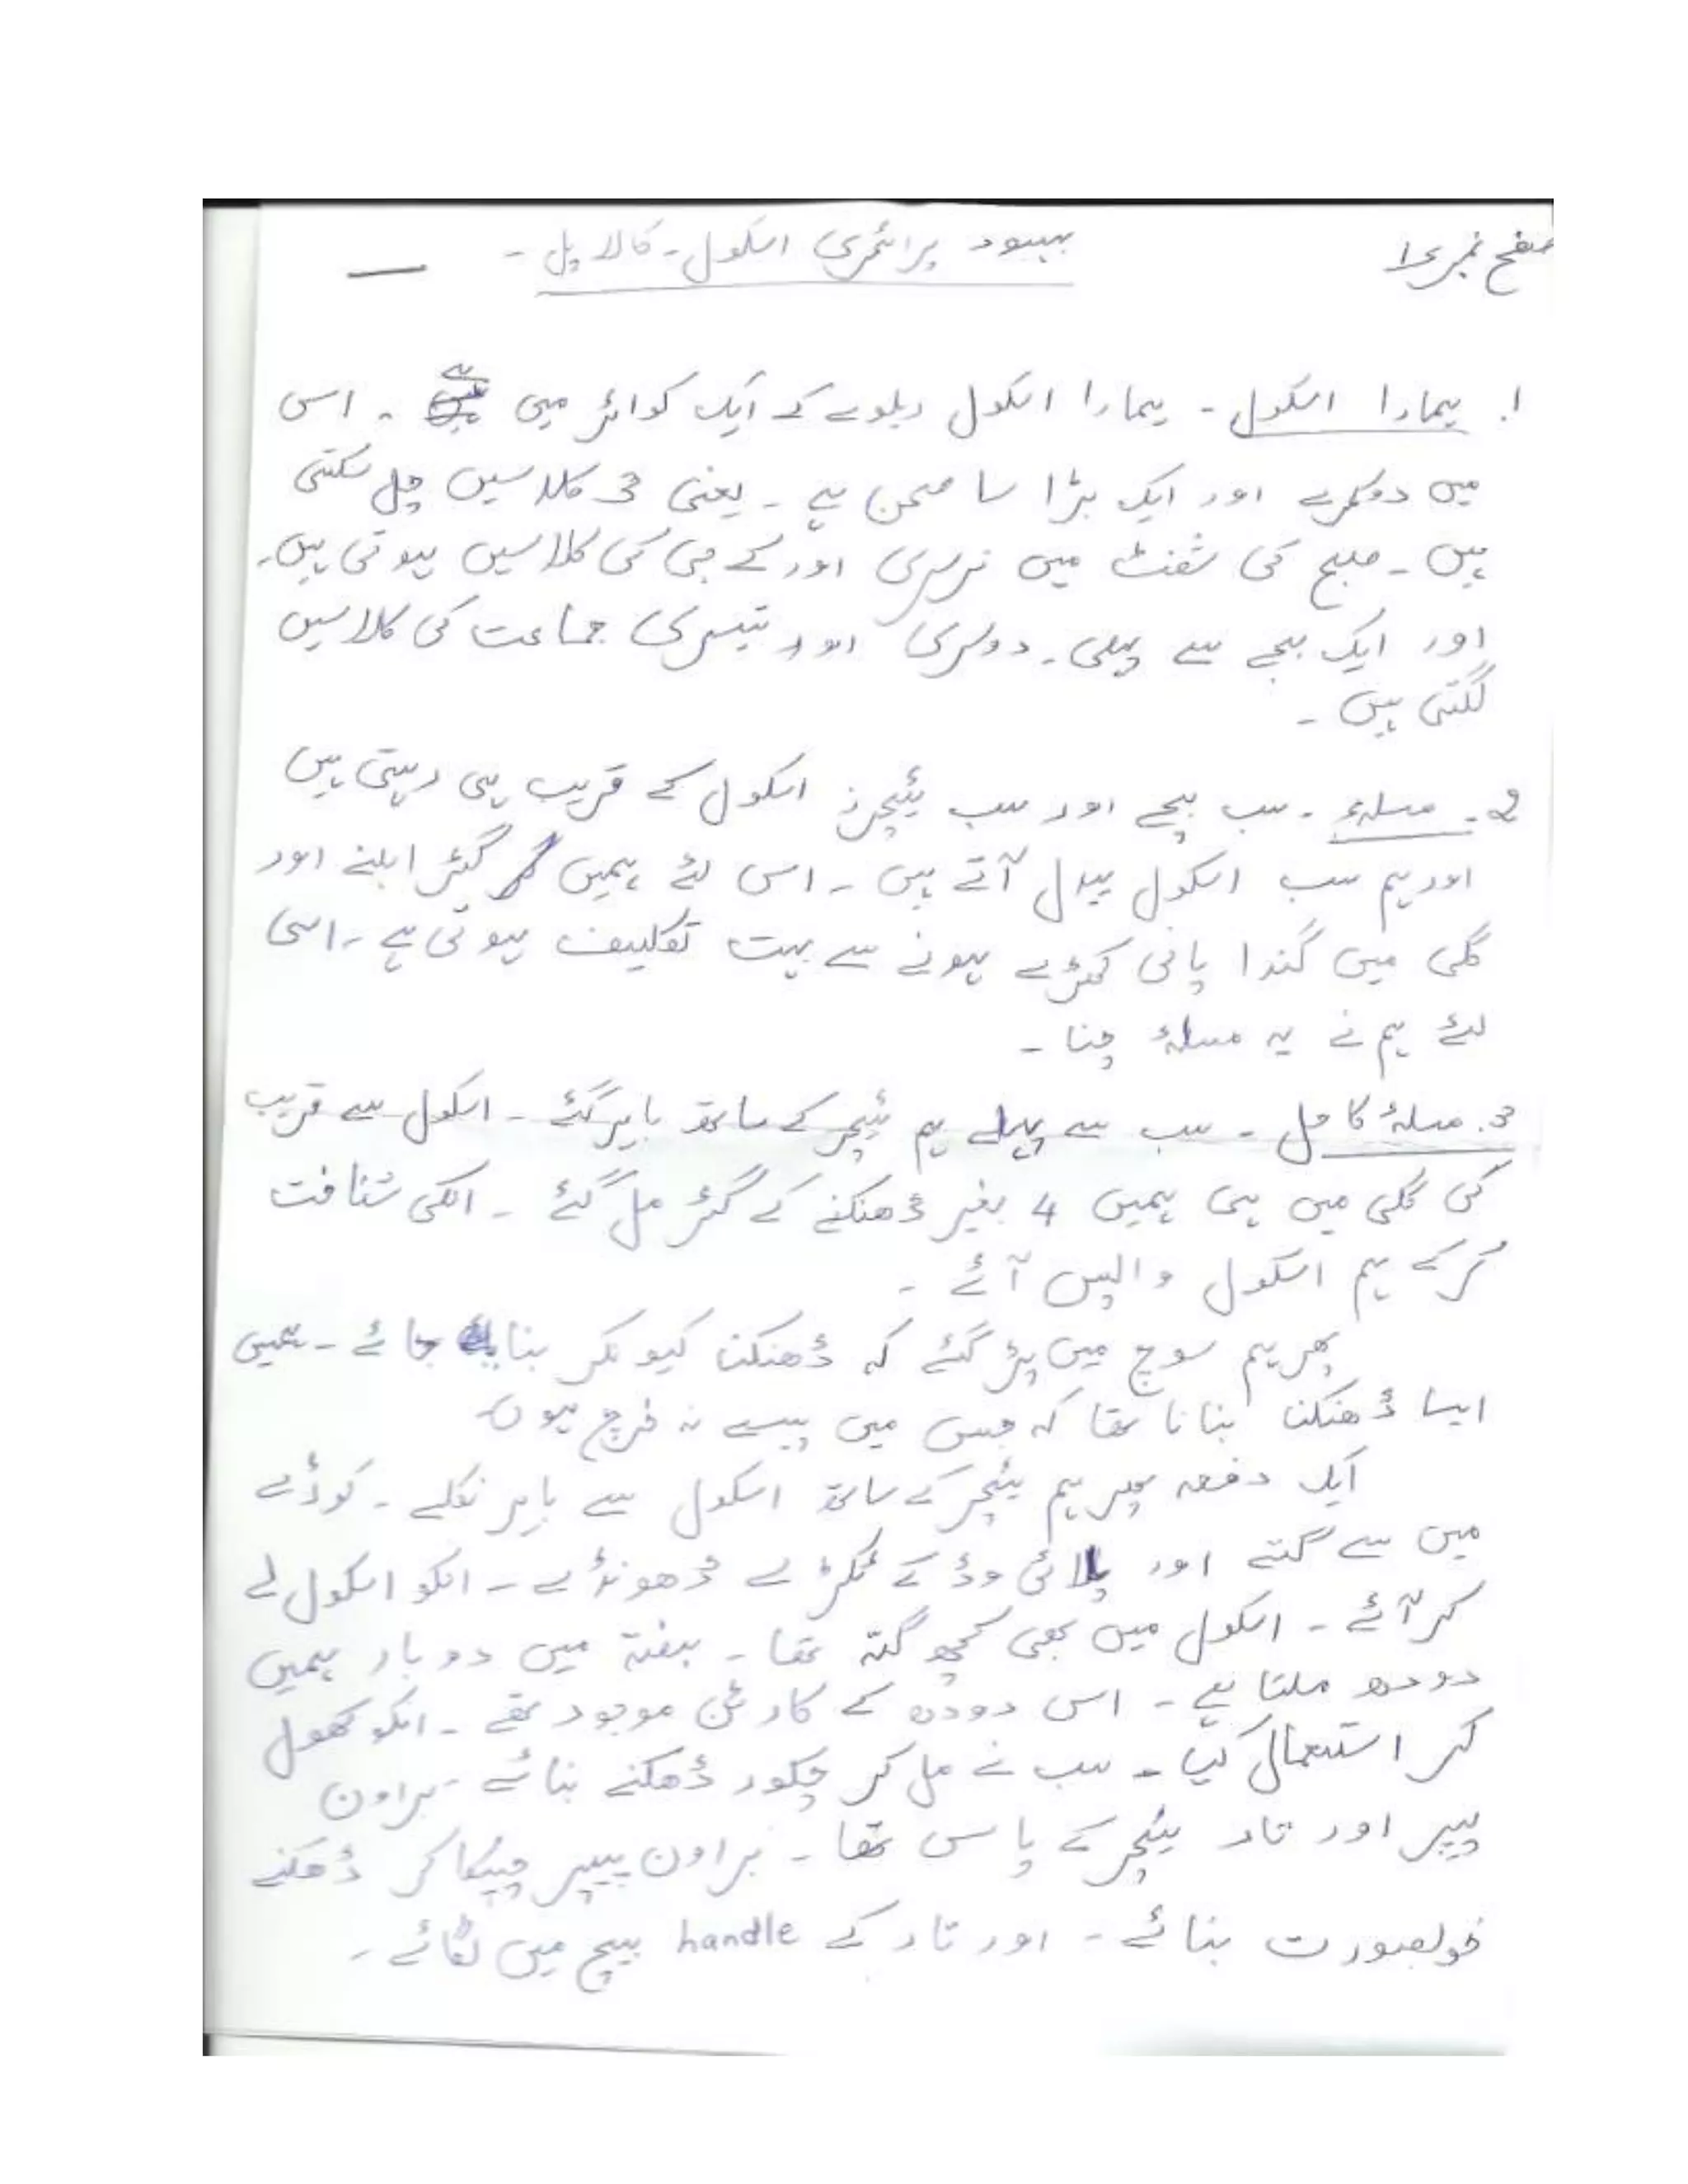 صفحہ نمبر ۱
بہبود پرائمری اسکول۔ کالا پل۔
۱. ہمارا اسکول۔ ہمارا اسکول ریلوے کے ایک کواٹر میں ہے۔ اس
میں دو کمرے اور ایک بڑا سا صحن ہے۔ یعنی 3 کلاسیں چل سکتی
ہیں۔ صبح کی شفٹ میں نرسری اور کے جی کی کلاسیں ہوتی ہیں۔
اور ایک بجے سے پہلی۔ دوسری اور تیسری جماعت کی کلاسیں
لگتی ہیں۔
2۔ مسلہء۔ سب بچے اور سب ٹیچرز اسکول کے قریب ہی رہتی ہیں
اور ہم سب اسکول پیدل آتے ہیں۔ اس لئے ہمیں گٹر ابلنے اور
گلی میں گندا پانی کھڑے ہونے سے بہت تکلیف ہوتی ہے۔ اسی
لئے ہم نے یہ مسلۂ چنا۔
3. مسلۂ کا حل۔ سب سے پہلے ہم ٹیچر کے ساتھ باہر گئے۔ اسکول سے قریب
کی گلی میں ہی ہمیں 4 بغیر ڈھنکنے کے گٹر مل گئے۔ انکی شنافت
کرکے ہم اسکول واپس آئے۔
پھر ہم سوچ میں پڑ گئے کہ ڈھنکنا کیونکر بنایا جائے۔ ہمیں
ایسا ڈھنکنا بنانا تھا کہ جس میں پیسے نہ خرچ ہوں۔
ایک دفعہ پھر ہم ٹیچر کے ساتھ اسکول سے باہر نکلے۔ کوڑے
میں سے گتے اور پلائی وڈ کے ٹکڑے ڈھونڈے۔ انکو اسکول لے
کر آئے۔ اسکول میں بھی کچھ گتہ تھا۔ ہفتہ میں دو بار ہمیں
دودھ ملتا ہے۔ اس دودھ کے کارٹن موجود تھے۔ انکو کھول
کر استعمال کیا۔ سب نے مل کر چکور ڈھکنے بنائے۔ براون
پیپر اور تار ٹیچر کے پاس تھا۔ براون پیپر چپکا کر ڈھکنے
خوبصورت بنائے۔ اور تار کے handle بیچ میں لگائے۔